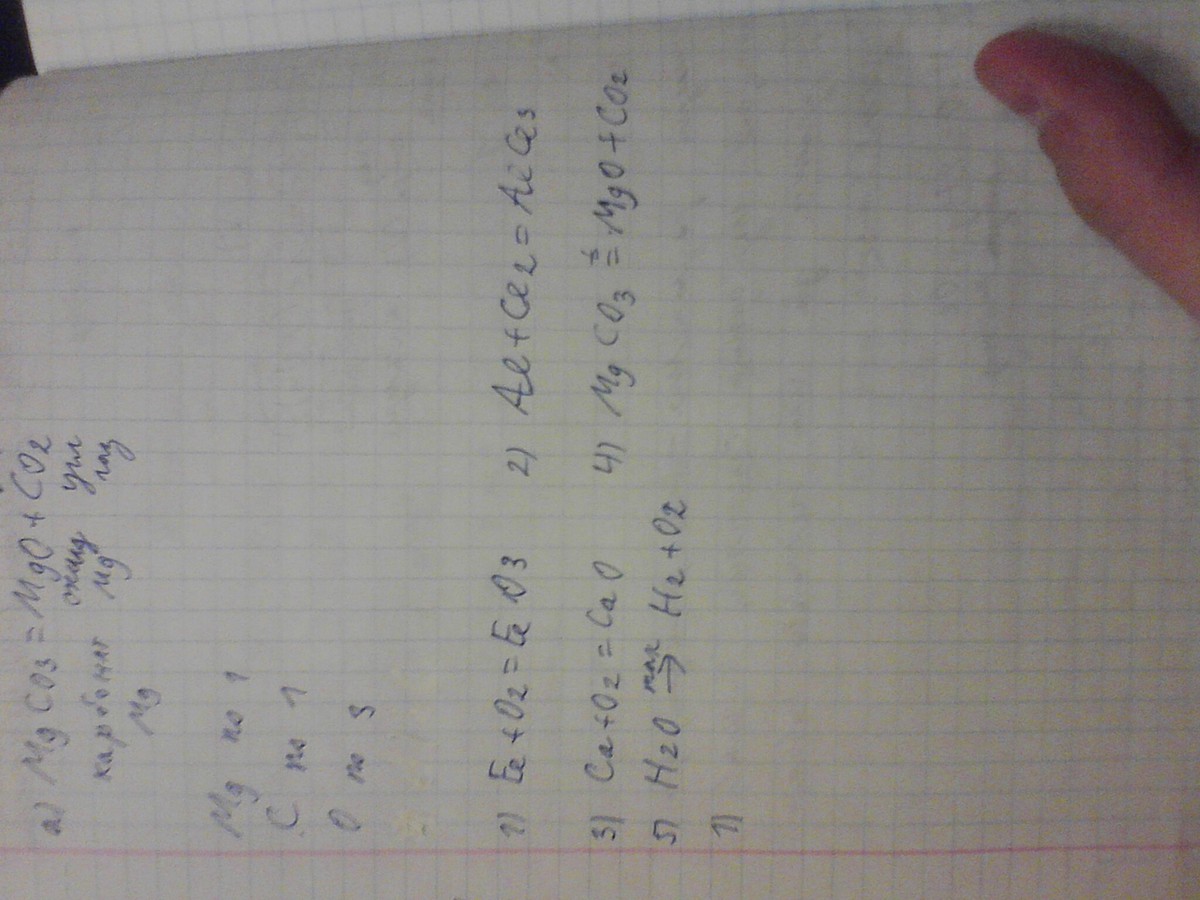 а) MgCO3 = MgO + CO2
карбонат оксид угл
Mg Mg газ
Mg по 1
C по 1
O по 3
1) Fe + O2 = Fe O3 2) Al + Cl2 = AlCl3
3) Ca + O2 = CaO 4) MgCO3 t= MgO + CO2
5) H2O → H2 + O2
1)